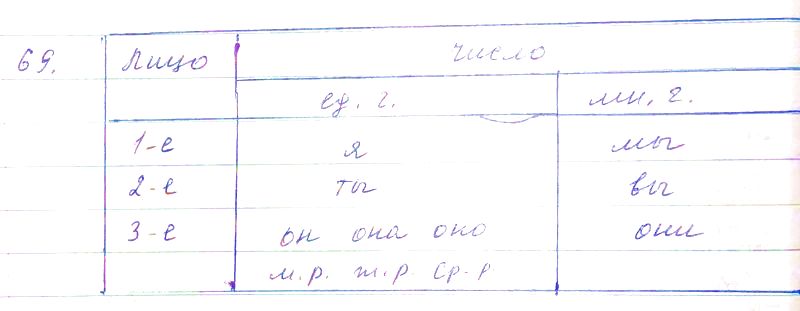 69. Лицо число
ед. ч. мн. ч.
1-е я мы
2-е ты вы
3-е он она оно они
м.р. ж.р. ср.р